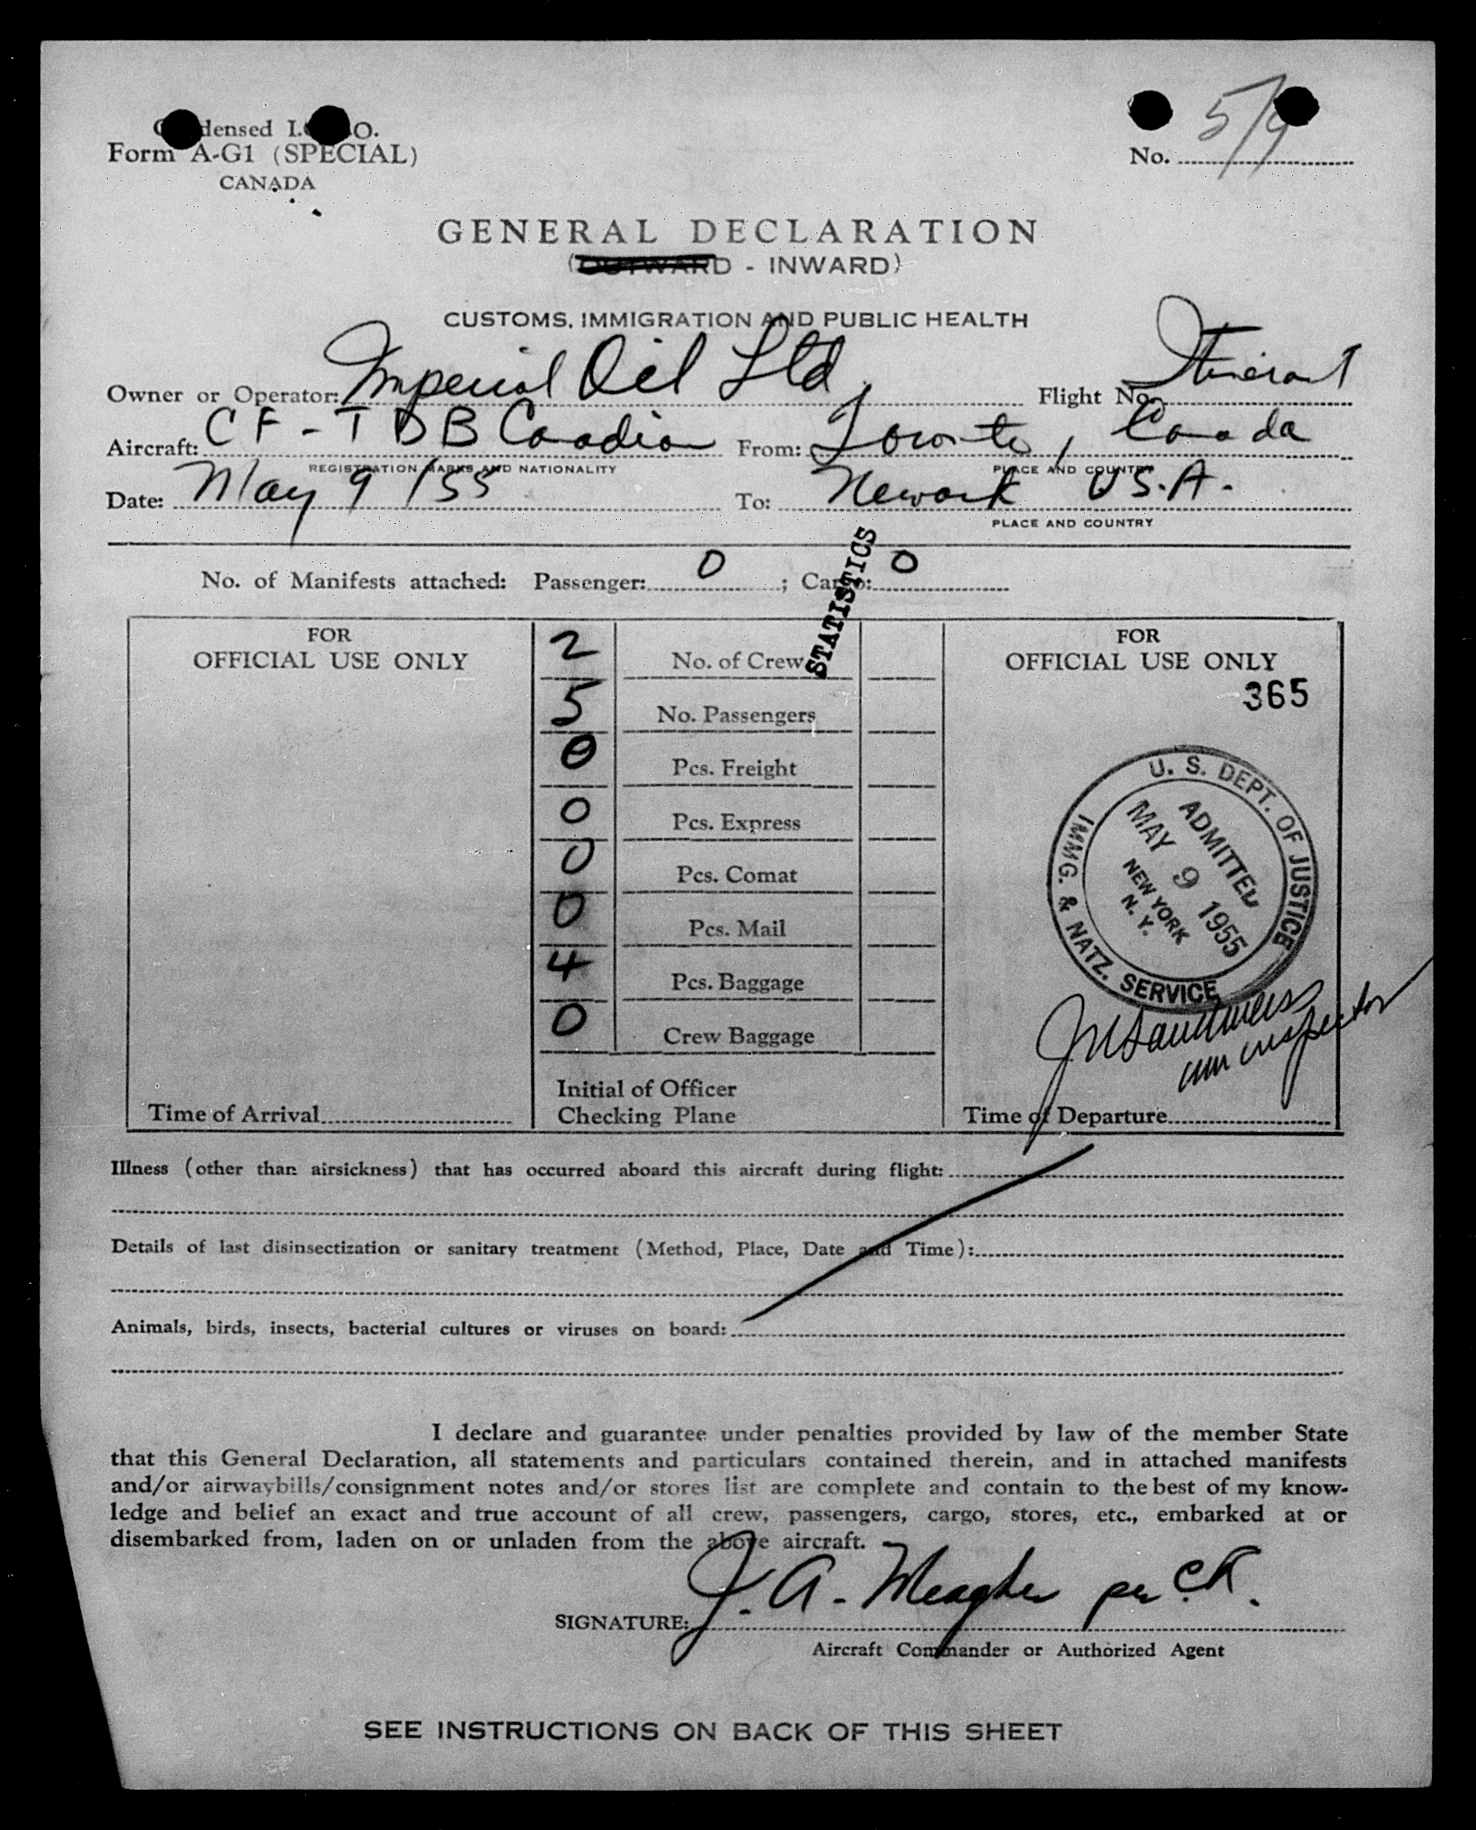 Condensed I.C.A.O.
Form A-G1 (SPECIAL)
CANADA
No. 5/9
GENERAL DECLARATION
(OUTWARD - INWARD)
CUSTOMS, IMMIGRATION AND PUBLIC HEALTH
Owner or Operator: Imperial Oil Ltd. Flight No. Itinerant
Aircraft: CF-TDB Canadian From: Toronto, Canada
REGISTRATION MARKS AND NATIONALITY PLACE AND COUNTRY
Date: May 9/55 To: Newark U.S.A.
PLACE AND COUNTRY
No. of Manifests attached: Passenger: 0; Cargo: 0
STATISTICS
FOR
OFFICIAL USE ONLY
Time of Arrival
2 No. of Crew
5 No. Passengers
0 Pcs. Freight
0 Pcs. Express
0 Pcs. Comat
0 Pcs. Mail
4 Pcs. Baggage
0 Crew Baggage
Initial of Officer
Checking Plane
FOR
OFFICIAL USE ONLY
365
U. S. DEPT. OF JUSTICE
IMMG. & NATZ. SERVICE
ADMITTED
MAY 9 1955
NEW YORK
N. Y.
inspector
Time of Departure
Illness (other than airsickness) that has occurred aboard this aircraft during flight:
Details of last disinsectization or sanitary treatment (Method, Place, Date and Time):
Animals, birds, insects, bacterial cultures or viruses on board:
I declare and guarantee under penalties provided by law of the member State
that this General Declaration, all statements and particulars contained therein, and in attached manifests
and/or airwaybills/consignment notes and/or stores list are complete and contain to the best of my know-
ledge and belief an exact and true account of all crew, passengers, cargo, stores, etc., embarked at or
disembarked from, laden on or unladen from the above aircraft.
SIGNATURE: J. A. Meagher per C.K.
Aircraft Commander or Authorized Agent
SEE INSTRUCTIONS ON BACK OF THIS SHEET